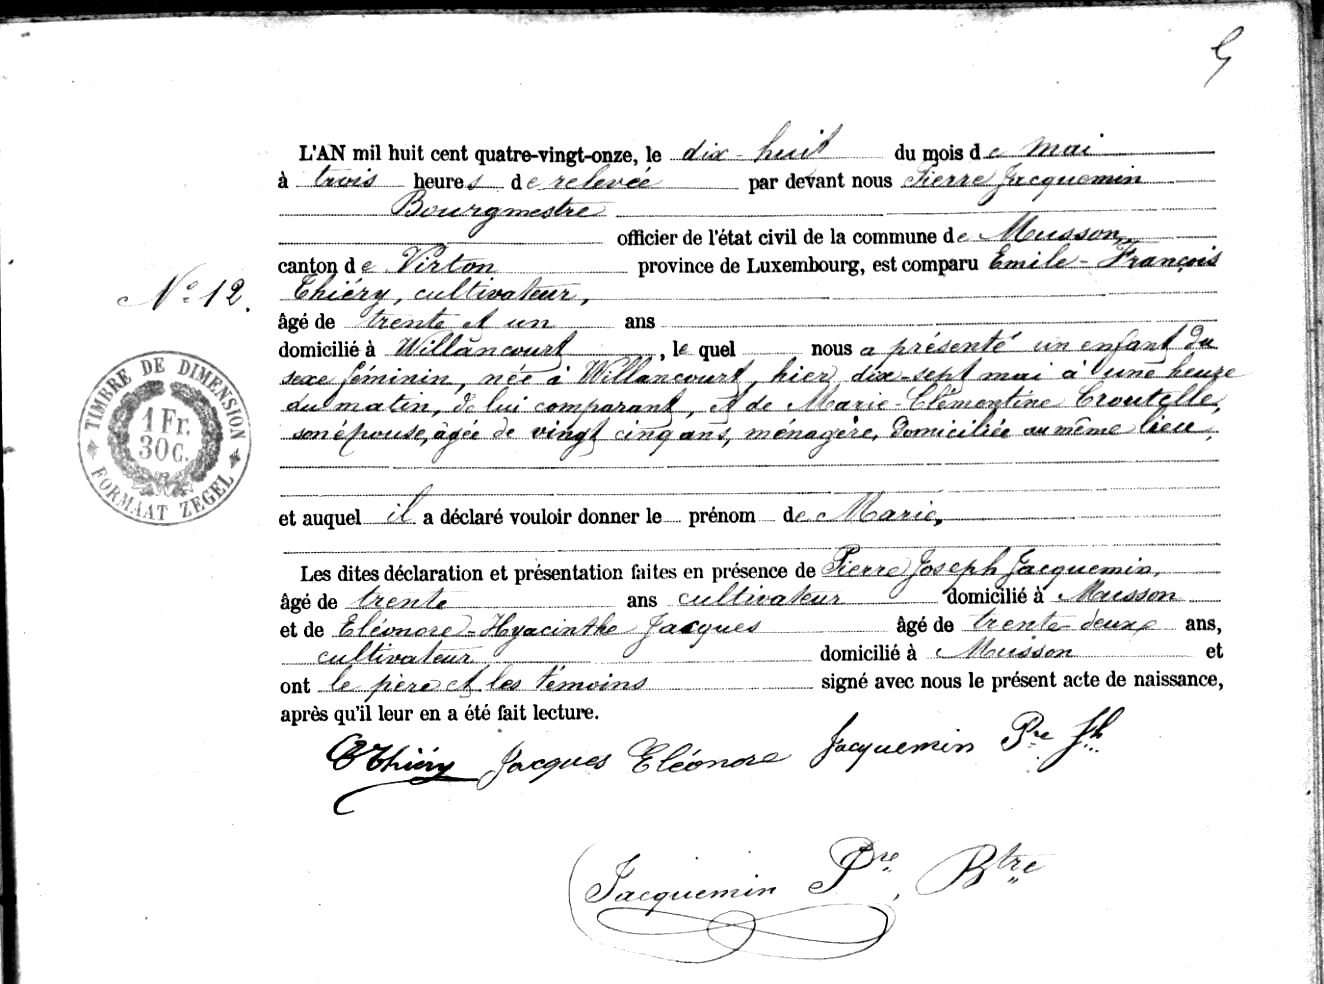 5
L'AN mil huit cent quatre-vingt-onze, le dix-huit du mois de Mai
à trois heures de relevée par devant nous Pierre Jacquemin
Bourgmestre
officier de l'état civil de la commune de Musson,
canton de Virton province de Luxembourg, est comparu Emile-François
N° 12.
Thiéry, cultivateur,
âgé de trente et un ans
domicilié à Willancourt, le quel nous a présenté un enfant du
sexe féminin, née à Willancourt, hier, dix-sept mai à une heure
du matin, de lui comparant, et de Marie-Clémentine Croutelle,
son épouse, âgée de vingt cinq ans, ménagère, domiciliée au même lieu,
TIMBRE DE DIMENSION
1 Fr.
30 C.
FORMAAT ZEGEL
et auquel il a déclaré vouloir donner le prénom de Marie,
Les dites déclaration et présentation faites en présence de Pierre Joseph Jacquemin,
âgé de trente ans cultivateur domicilié à Musson
et de Eléonore-Hyacinthe Jacques âgé de trente-deux ans,
cultivateur domicilié à Musson et
ont le père et les témoins signé avec nous le présent acte de naissance,
après qu'il leur en a été fait lecture.
EThiéry Jacques Eléonore Jacquemin Pre Jh
Jacquemin Pre, Btre